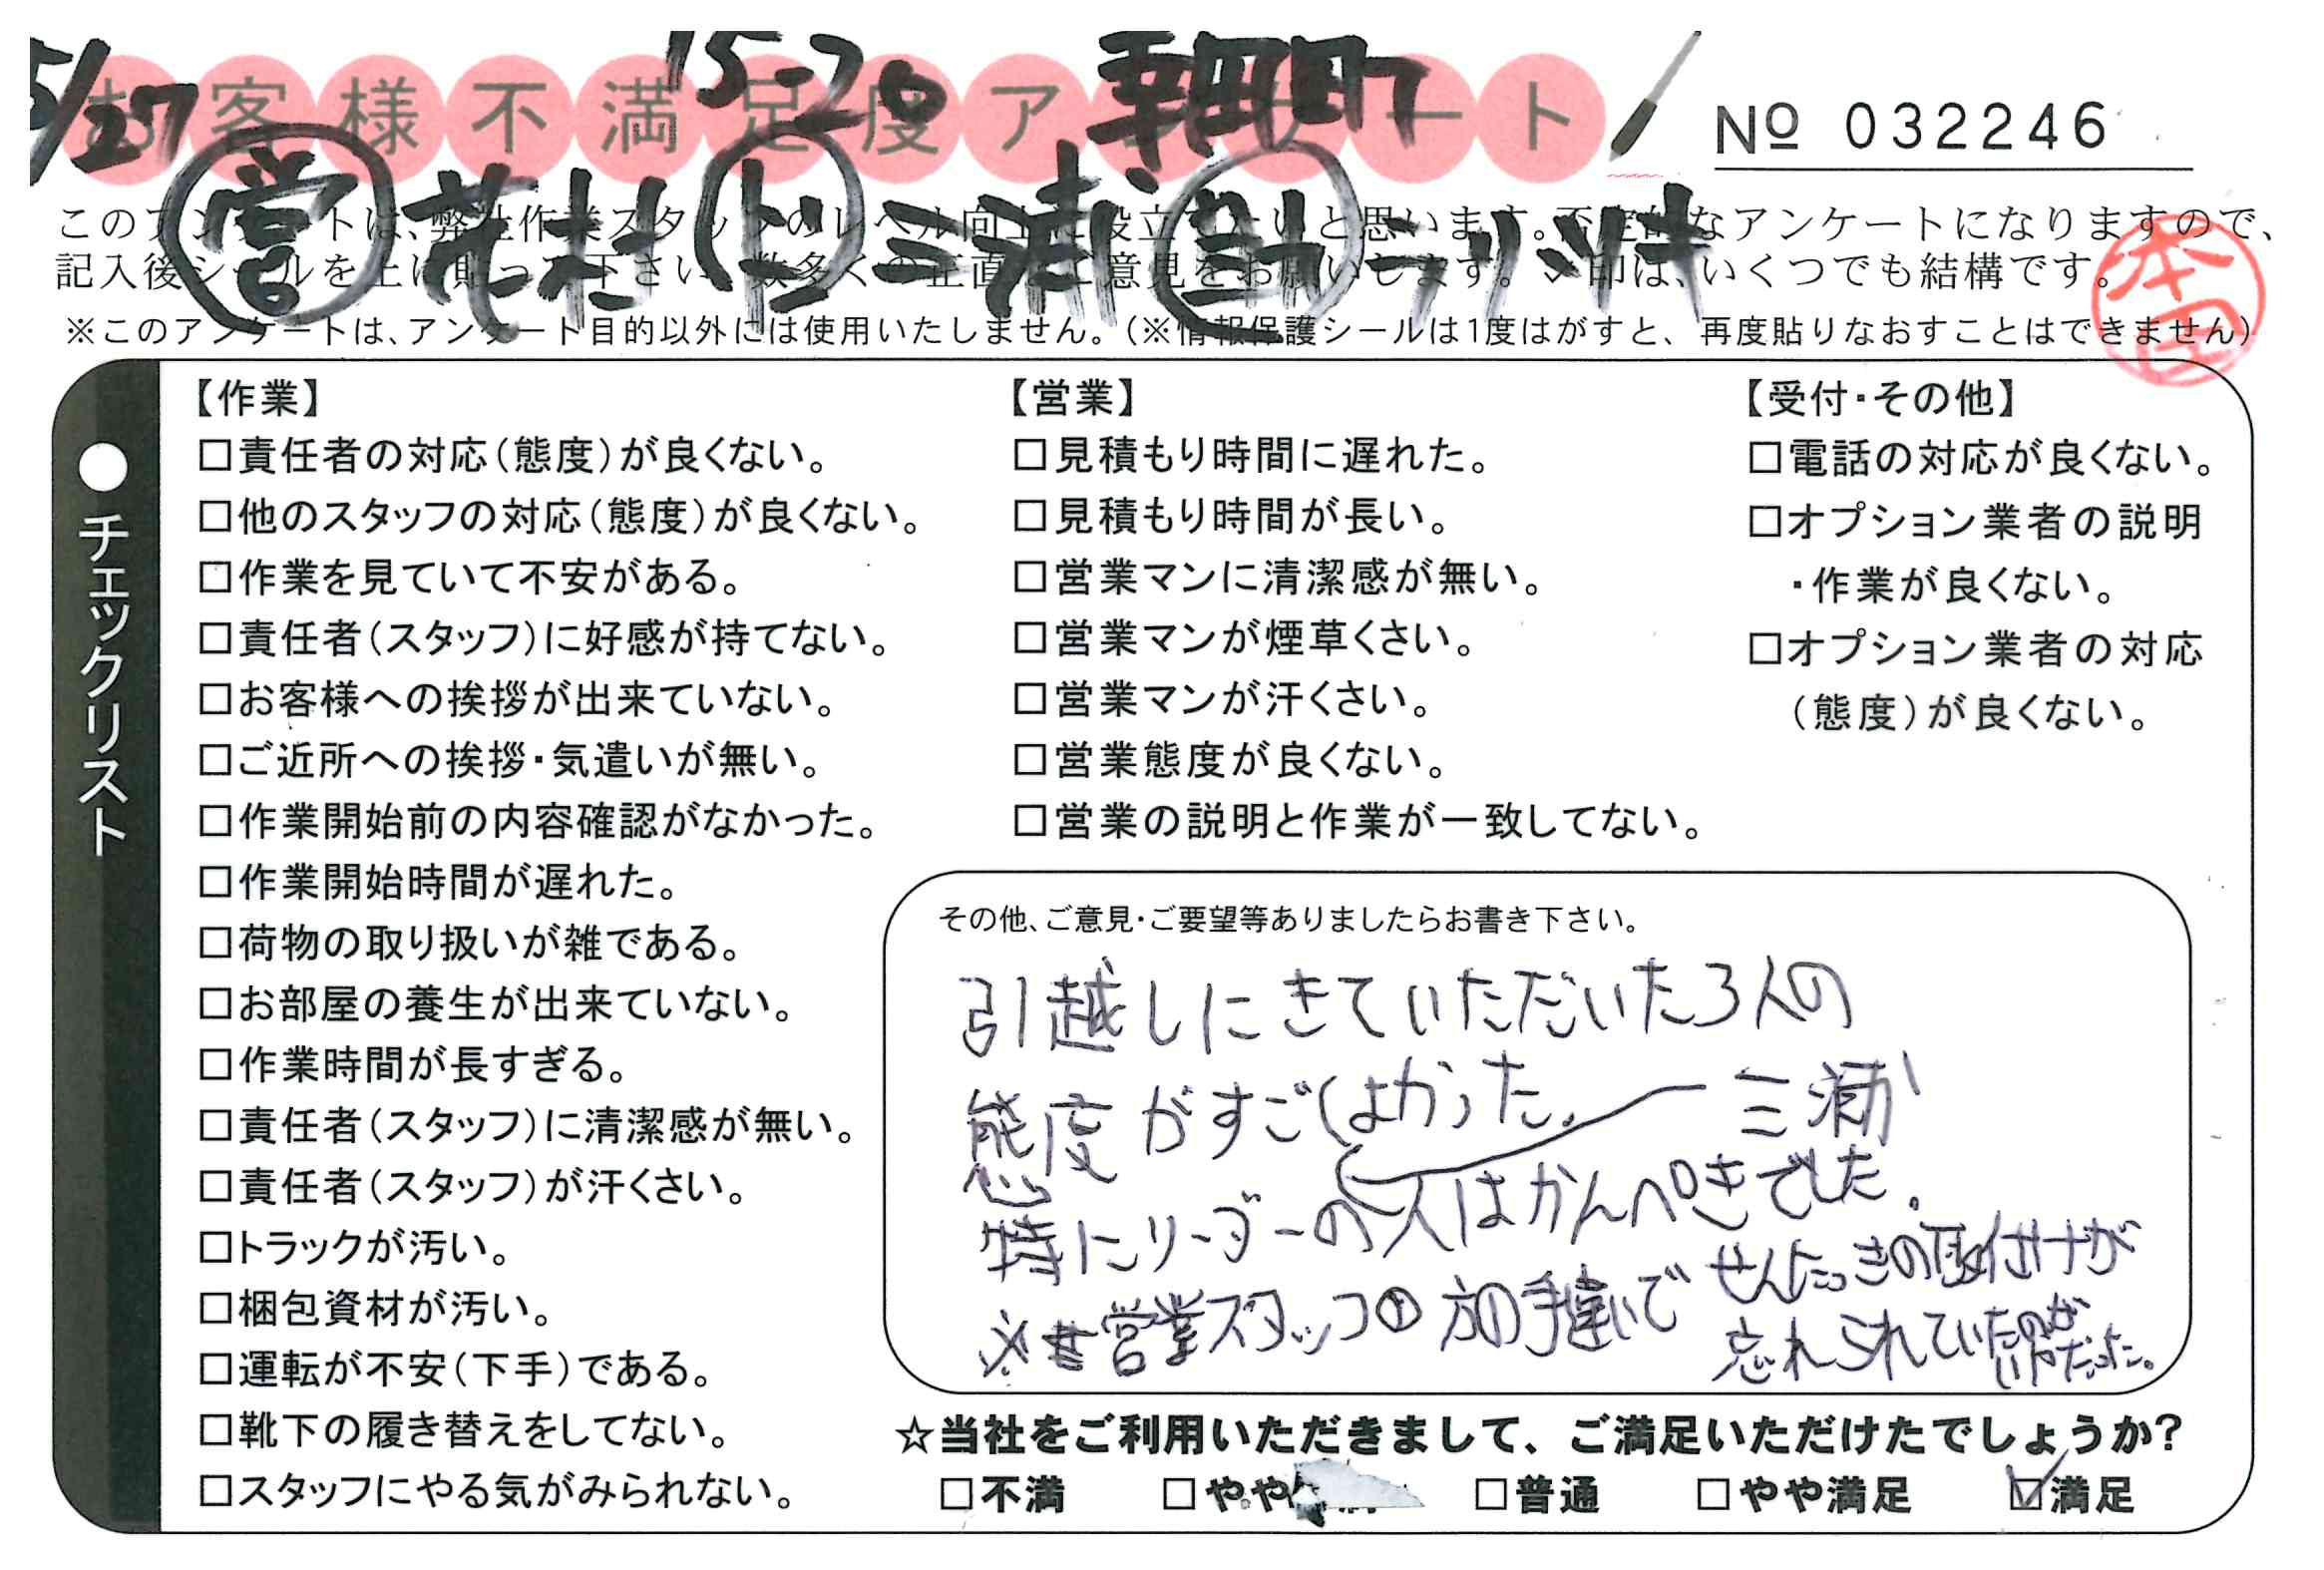 5/27 15-20 幸田町
お客様不満足度アンケート
No 032246
営 花村 ド 三浦
このアンケートは、弊社作業スタッフのレベル向上に役立てたいと思います。否定的なアンケートになりますので、
記入後シールを上に貼って下さい。数多くの正直なご意見をお願いします。✓印は、いくつでも結構です。
※このアンケートは、アンケート目的以外には使用いたしません。(※情報保護シールは1度はがすと、再度貼りなおすことはできません)
本田
●チェックリスト
【作業】
□責任者の対応(態度)が良くない。
□他のスタッフの対応(態度)が良くない。
□作業を見ていて不安がある。
□責任者(スタッフ)に好感が持てない。
□お客様への挨拶が出来ていない。
□ご近所への挨拶・気遣いが無い。
□作業開始前の内容確認がなかった。
□作業開始時間が遅れた。
□荷物の取り扱いが雑である。
□お部屋の養生が出来ていない。
□作業時間が長すぎる。
□責任者(スタッフ)に清潔感が無い。
□責任者(スタッフ)が汗くさい。
□トラックが汚い。
□梱包資材が汚い。
□運転が不安(下手)である。
□靴下の履き替えをしてない。
□スタッフにやる気がみられない。
【営業】
□見積もり時間に遅れた。
□見積もり時間が長い。
□営業マンに清潔感が無い。
□営業マンが煙草くさい。
□営業マンが汗くさい。
□営業態度が良くない。
□営業の説明と作業が一致してない。
【受付・その他】
□電話の対応が良くない。
□オプション業者の説明
・作業が良くない。
□オプション業者の対応
(態度)が良くない。
その他、ご意見・ご要望等ありましたらお書き下さい。
引越しにきていただいた3人の
態度がすごくよかった。 三浦
特にリーダーの人はかんぺきでした。
※営業スタッフの方の手違いで せんたっきの取付けが
忘れられていたのが
だった。
☆当社をご利用いただきまして、ご満足いただけたでしょうか?
□不満 □やや満 □普通 □やや満足 ☑満足